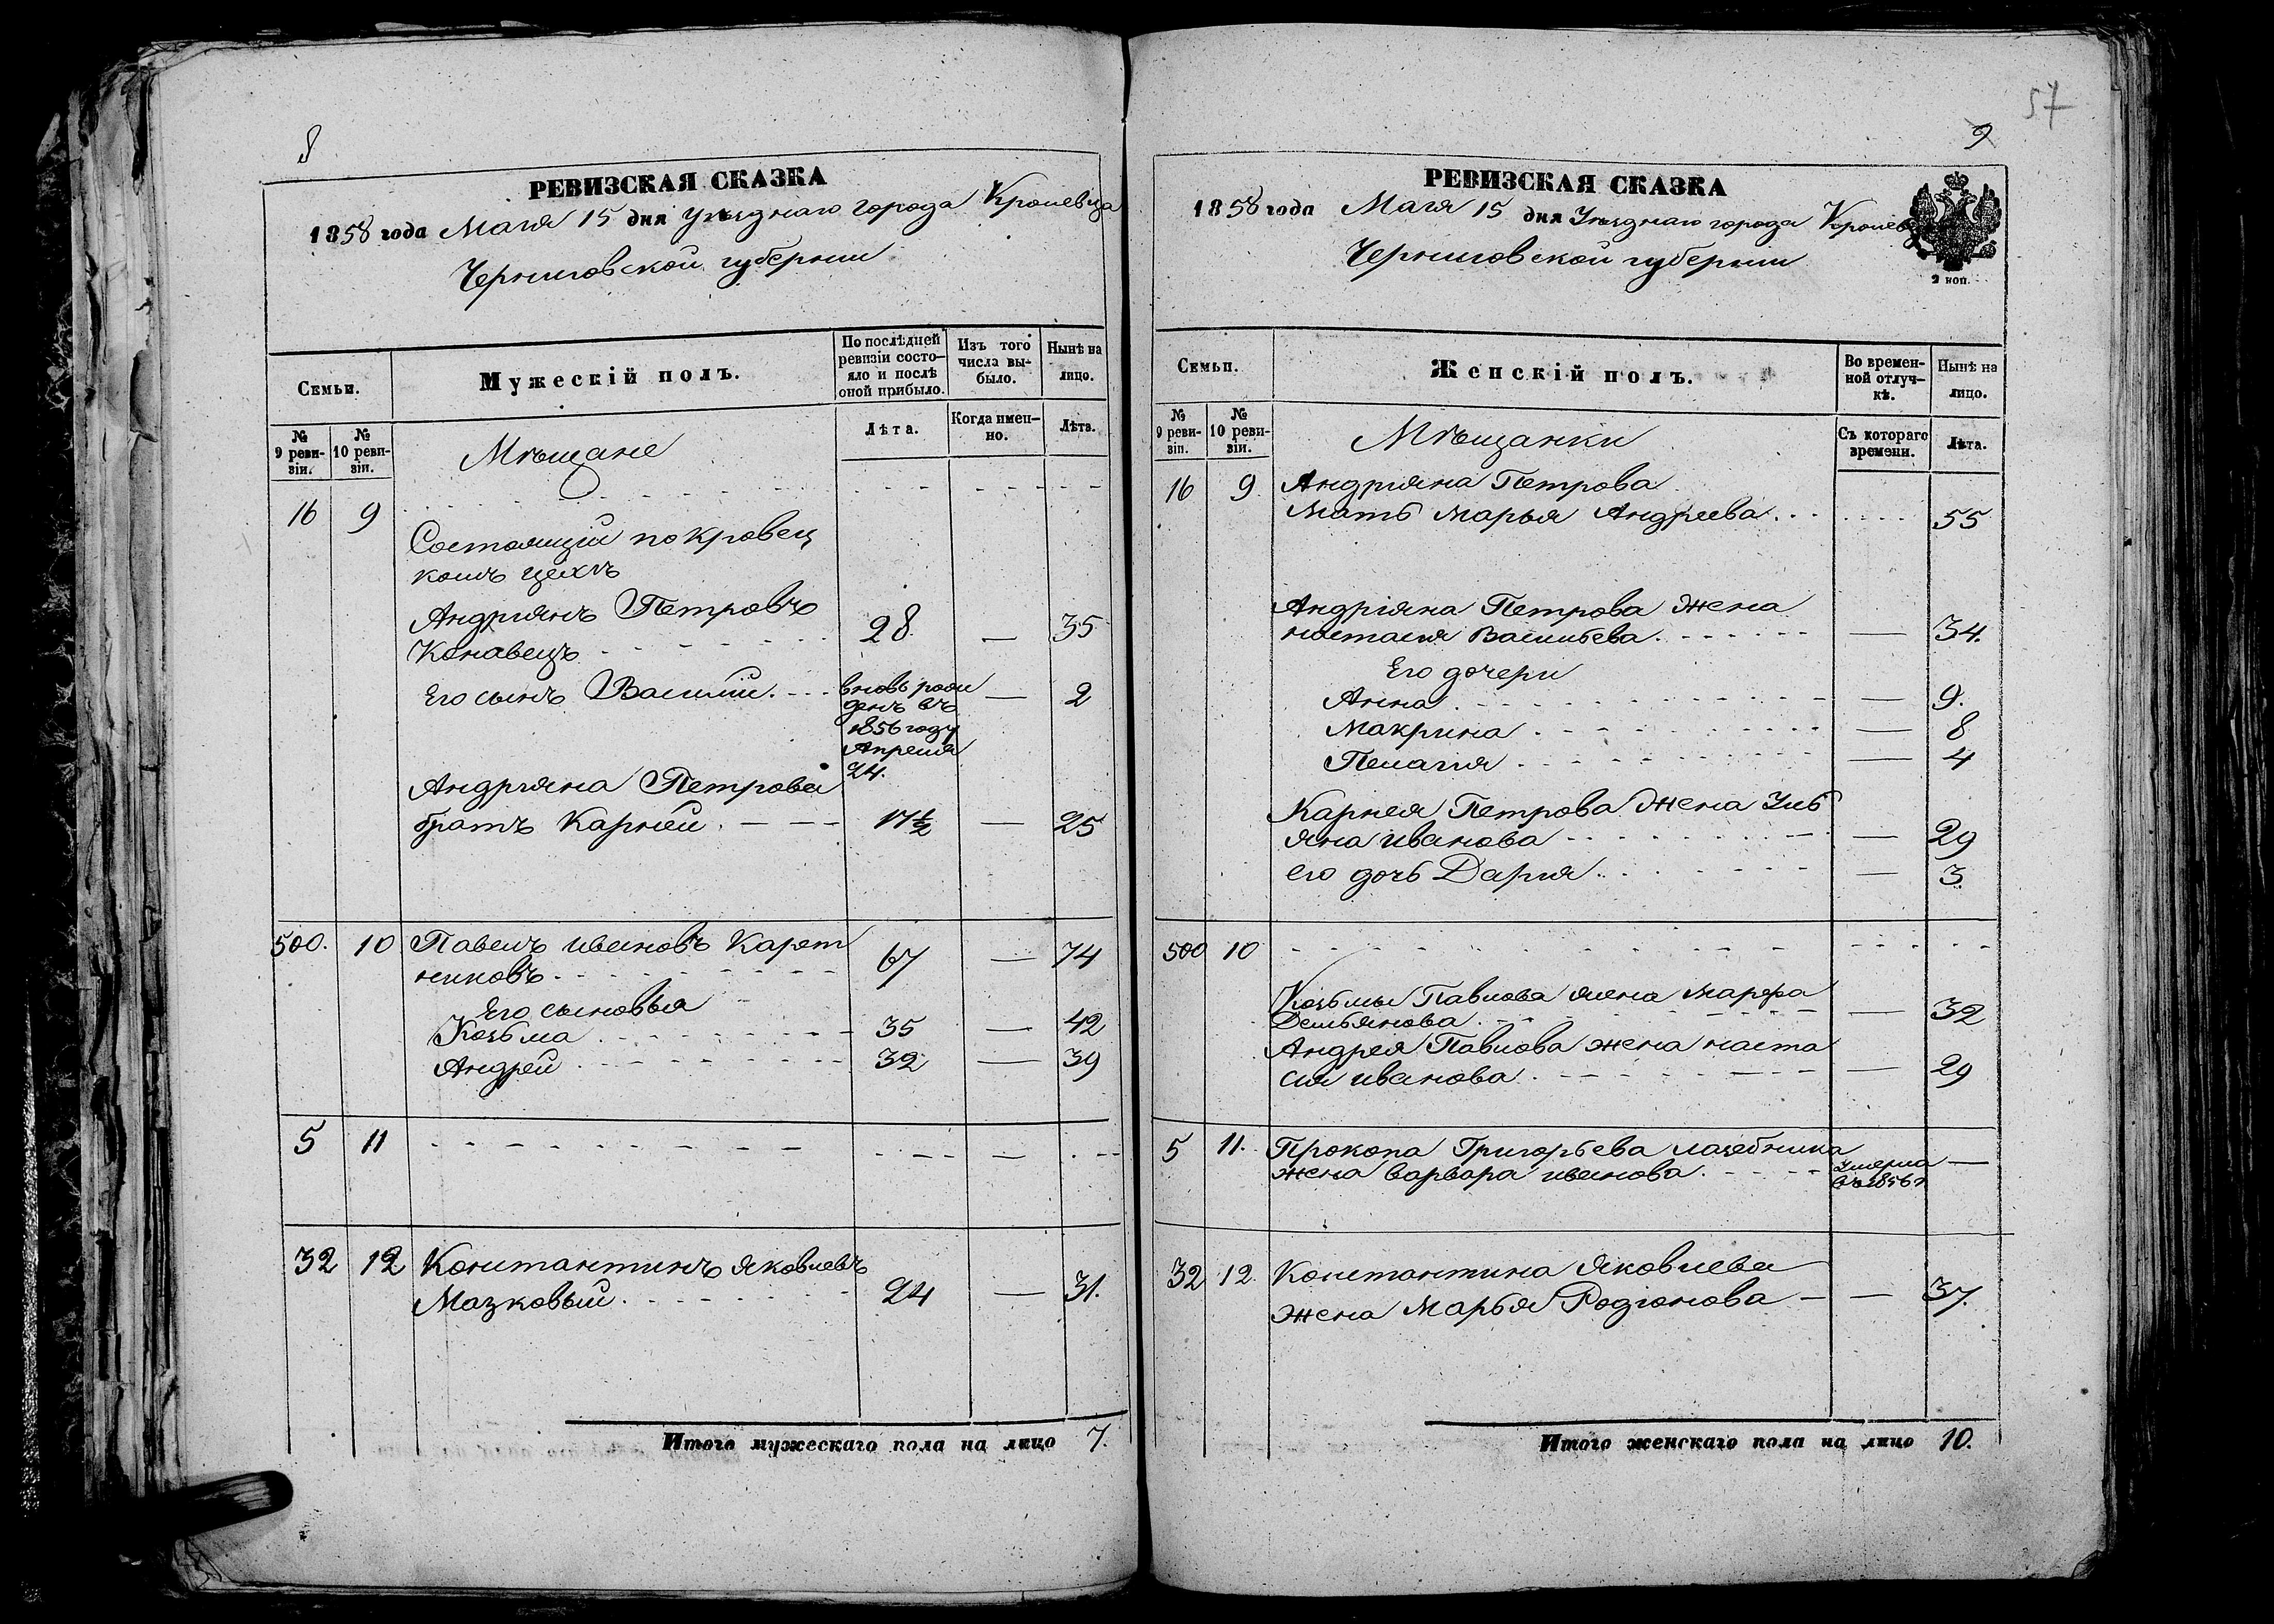 8
РЕВИЗСКАЯ СКАЗКА
1858 года Маия 15 дня уѣзднаго города Кролевца
Черниговской губернии
Семьи.
Мужескій полъ.
По послѣдней ревизіи состо-
яло и послѣ оной прибыло.
Изъ того числа вы-
было.
Нынѣ на лицо.
№ 9 реви-
зіи.
№ 10 реви-
зіи.
Мѣщане
Лѣта.
Когда имен-
но.
Лѣта.
16 9
Состоящии по кравец
комъ цехѣ
Андриянъ Петровъ
Конавецъ 28 — 35
Его сынъ Василий вновь рож
денъ въ
1856 году
Апреля
24. — 2
Андрияна Петрова
братъ Карней 17½ — 25
500. 10 Павелъ ивановъ Карет
никовъ 67 — 74
Его сыновья
Козьма 35 — 42
Андрей 32 — 39
5 11
32 12 Константинъ яковлевъ
Мазковый 24 — 31.
Итого мужескаго пола на лицо 7.
57
9
РЕВИЗСКАЯ СКАЗКА
1858 года Маия 15 дня Уѣзднаго города
Черниговской губернии
2 коп.
Семьи.
Женскій полъ.
Во времен-
ной отлуч-
кѣ.
Нынѣ на лицо.
№ 9 реви-
зіи.
№ 10 реви-
зіи.
Мѣщанки
Съ котораго времени.
Лѣта.
16 9 Андрияна Петрова
мать марья Андреева 55
Андріяна Петрова жена
настасия Васильева — 34.
Его дочери
Анна — 9.
Макрина — 8
Пелагия — 4
Карнея Петрова жена Уль
яна иванова — 29
его дочь Дария — 3
500 10
Козьмы Павлова жена марфа
Демьянова — 32
Андрея Павлова жена наста
сия иванова — 29
5 11. Прокопа Григорьева лазебника
жена варвара иванова Умерла
въ 1856 г —
32 12. Константина Яковлева
жена Марья Родионова — 37.
Итого женскаго пола на лицо 10.